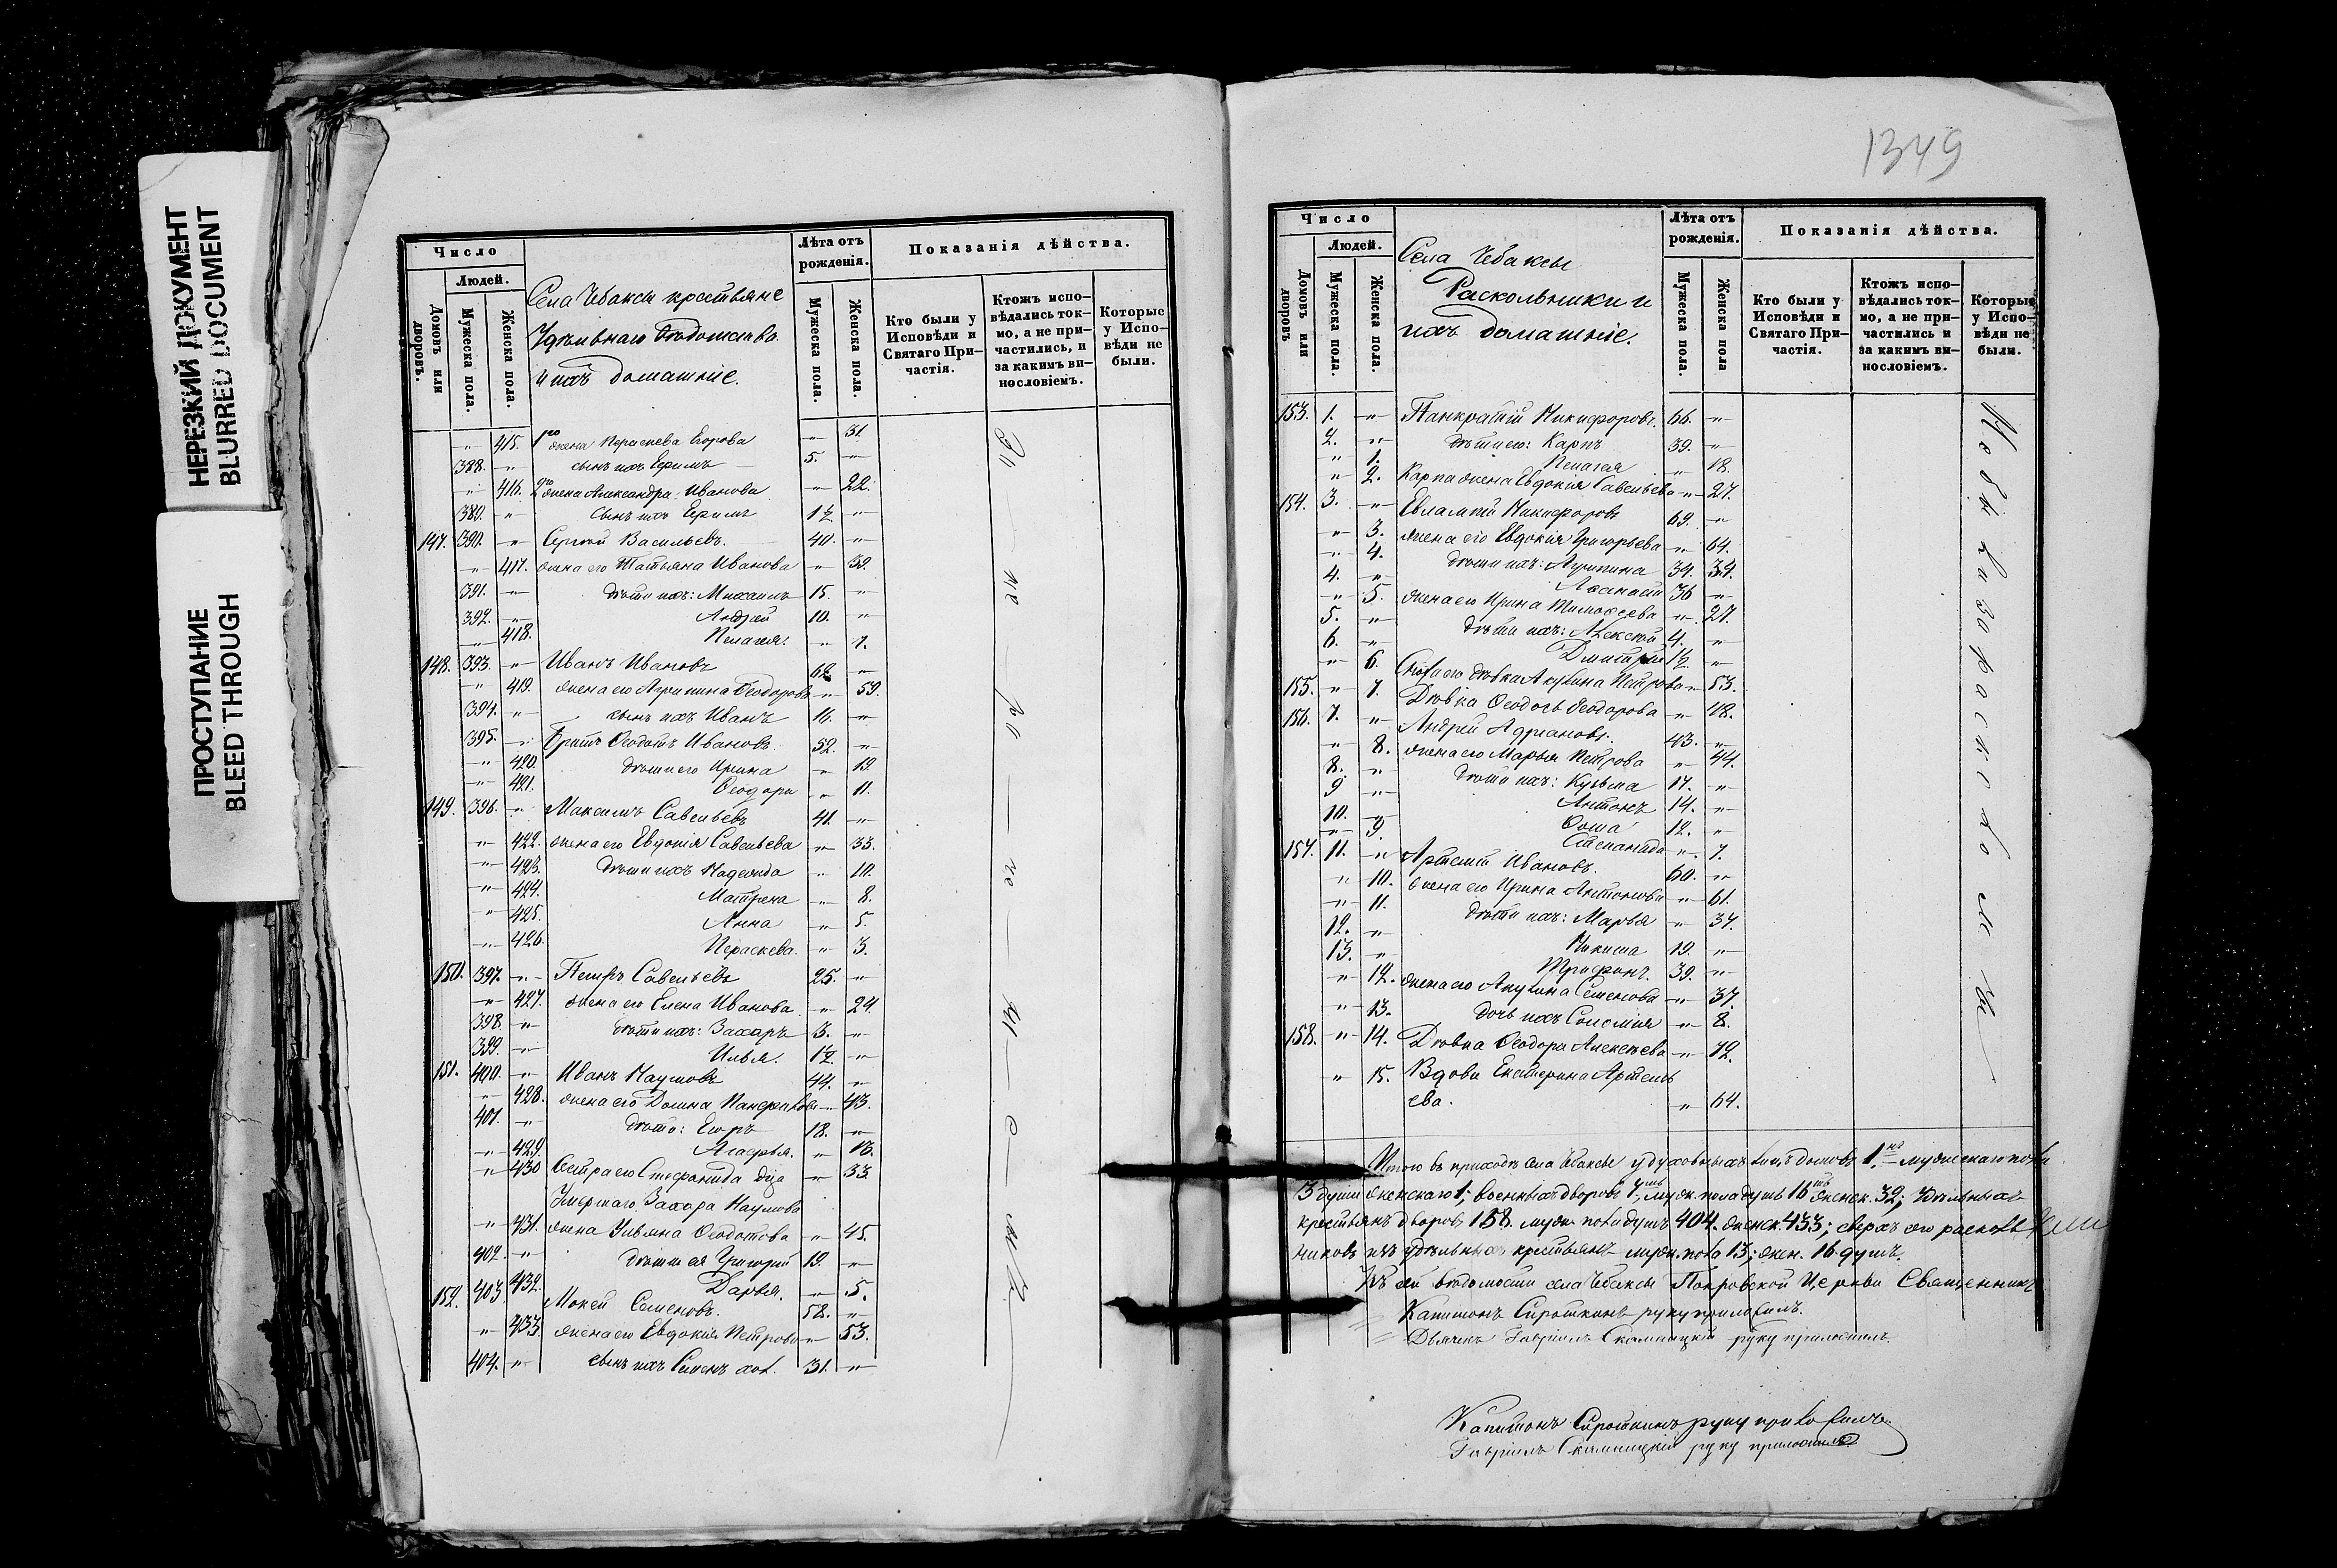 НЕРЕЗКИЙ ДОКУМЕНТ
BLURRED DOCUMENT
ПРОСТУПАНИЕ
BLEED THROUGH
Число
Людей.
Домовъ или дворовъ.
Мужеска пола.
Женска пола.
Села Чебаксы крестьяне
Удѣльнаго вѣдомства
и ихъ домашніе.
Лѣта отъ рожденія.
Мужеска пола.
Женска пола.
Показанія дѣйства.
Кто были у Исповѣди и Святаго При-частія.
Ктожъ испо-вѣдались ток-мо, а не при-частились, и за какимъ ви-нословіемъ.
Которые у Испо-вѣди не были.
„ 415. 1го жена Параскева Егорова „ 31.
388. „ сынъ ихъ Ефимъ 5. „
„ 416. 2го жена Александра Иванова „ 22.
389. „ сынъ ихъ Ефимъ 1/2 „
147. 390. „ Сергей Васильевъ. 40. „
„ 417. жена его Татьяна Иванова „ 39.
391. „ дѣти ихъ: Михаилъ 15. „
392. „ Андрей 10. „
„ 418. Пелагея. „ 7.
148. 393. „ Иванъ Ивановъ 62. „
„ 419. жена его Агрипина Ѳеодорова „ 59.
394. „ сынъ ихъ Иванъ 16. „
395. „ Братъ Ѳеодотъ Ивановъ. 52. „
„ 420. дѣти его Ирина „ 19.
„ 421. Ѳеодора „ 11.
149. 396. „ Максимъ Савельевъ 41. „
„ 422. жена его Евдокія Савельева „ 33.
„ 423. дѣти ихъ Надежда „ 10.
„ 424. Матрена „ 8.
„ 425. Анна „ 5.
„ 426. Параскева. „ 3.
150. 397. „ Петръ Савельевъ 25. „
„ 427. жена его Елена Иванова „ 24.
398. „ дѣти ихъ: Захаръ 3. „
399. „ Илья. 1/2. „
151. 400. „ Иванъ Наумовъ 44. „
„ 428. жена его Домна „ 43.
401. „ дѣти: Егоръ 18. „
„ 429. Агафья. „ 16.
„ 430 Сестра его Стефанида дѣва „ 33
Умершаго Захара Наумова
„ 431. жена Ульяна Ѳеодотова „ 45.
402. „ дѣти ея Григорій 19. „
432. Дарья. „ 5.
152. 403 Мокей Семеновъ. 58. „
„ 433 жена его Евдокія Петрова „ 53.
404. „ сынъ ихъ Семенъ хол. 31. „
1349
Число
Людей.
Домовъ или дворовъ
Мужеска пола.
Женска пола.
Села Чебаксы
Раскольники и
ихъ домашніе.
Лѣта отъ рожденія.
Мужеска пола.
Женска пола
Показанія дѣйства.
Кто были у Исповѣди и Святаго При-частія.
Ктожъ испо-вѣдались ток-мо, а не при-частились и за какимъ ви-нословіемъ.
Которые у Испо-вѣди не были.
153. 1. „ Панкратій Никифоровъ. 66. „
2. „ дѣти его: Карпъ 39. „
„ 1. Пелагея „ 18.
„ 2. Карпа жена Евдокія Савельева „ 27.
154. 3. „ Евлампій Никифоровъ 69. „
„ 3. жена его Евдокія Григорьева „ 64.
„ 4. дѣти ихъ: Агрипина 34. 34.
4. „ Аѳанасій 36 „
„ 5. жена его Ирина Тимоѳеева „ 27.
5. „ дѣти ихъ: Алексѣй 4. „
6. „ Дмитрій 1/2. „
„ 6. дѣвка Акулина Петрова „ 53.
155. „ 7. Дѣвка Ѳеодосья Ѳеодорова „ 48.
156. 7. „ Андрей Адріановъ. 43. „
„ 8. жена его Марья Петрова „ 44.
8. „ дѣти ихъ: Кузьма 17. „
9 „ Антонъ 14. „
10. „ Ѳома 12. „
„ 9. Степанида „ 7.
157. 11. „ Артемій Ивановъ. 60. „
„ 10. жена его Ирина Антонова „ 61.
„ 11. дѣти ихъ: Марья „ 37.
12. „ Никита 19. „
13. „ Трифонъ. 39. „
„ 12. жена его Акулина Семенова „ 37.
„ 13. дочь ихъ Соломія „ 8.
158. „ 14. Дѣвка Ѳеодора Алексѣева „ 72.
„ 15. Вдова Екатерина Артемь
ева. „ 64.
Итого въ приходѣ села Чебаксы у духовныхъ лицъ домовъ 1, мужескаго пола
3 души женскаго 1; военныхъ дворовъ 7, муж. пола душъ 16 женск. 32; удѣльныхъ
крестьянъ дворовъ 158. муж. пола душъ 404. женск. 433; сверхъ сего расколь
никовъ изъ удѣльныхъ крестьянъ муж. пола 13; жен. 16 душъ.
Къ сей вѣдомости села Чебаксы Покровской Церкви Священникъ
Капитонъ Сироткинъ руку приложилъ.
Дьячекъ Гавріилъ руку приложилъ
Капитонъ Сироткинъ руку приложилъ.
Гавріилъ руку приложилъ